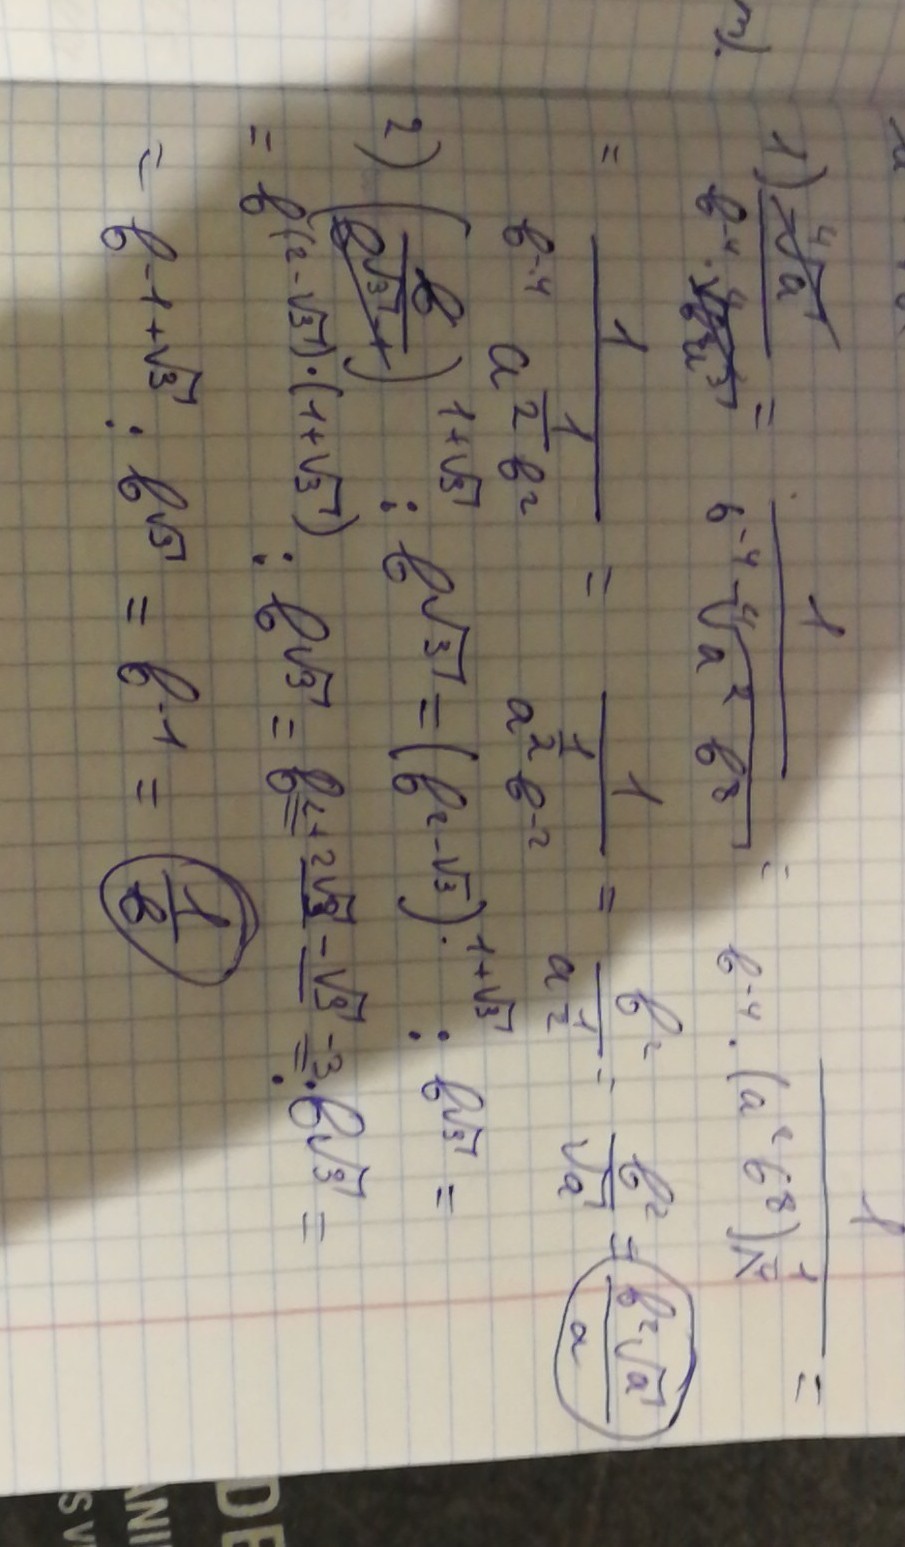 1) ⁴√a / b⁻⁴ · = 1 / b⁻⁴ ⁴√(a² b⁸) = 1 / b⁻⁴ · (a² b⁸)^(1/4) =
= 1 / b⁻⁴ a^(1/2) b² = 1 / a^(1/2) b⁻² = b² / a^(1/2) = b² / √a = b²√a / a
2) (b / b^(√3 - 1))^(1+√3) : b^√3 = (b^(2-√3))^(1+√3) : b^√3 =
= b^((2-√3)·(1+√3)) : b^√3 = b^(2+2√3-√3-3) : b^√3 =
= b^(-1+√3) : b^√3 = b⁻¹ = 1/b
DE
ANI
S V